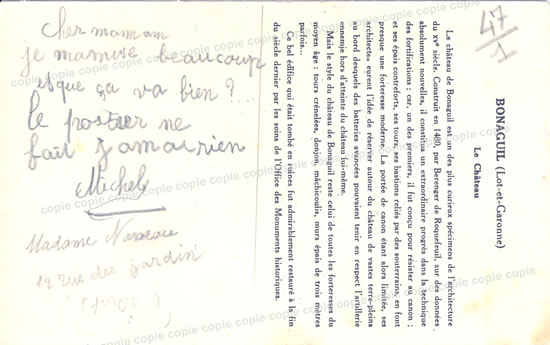 cher maman
je m'amuse beaucoup
es que ça va bien ?...
le postier ne
fait jamai rien
Michel
Madame
12 rue des jardin
47/1
BONAGUIL (Lot-et-Garonne)
Le Château
Le château de Bonaguil est un des plus curieux spécimens de l'architecture
du XVe siècle. Construit en 1480, par Berenger de Roquefeuil, sur des données
absolument nouvelles, il constitua un extraordinaire progrès dans la technique
des fortifications ; car, un des premiers, il fut conçu pour résister au canon ;
et ses épais contreforts, ses tours, ses bastions reliés par des souterrains, en font
presque une forteresse moderne. La portée de canon étant alors limitée, ses
architectes eurent l'idée de réserver autour du château de vastes terre-pleins
au bord desquels des batteries avancées pouvaient tenir en respect l'artillerie
ennemie hors d'atteinte du château lui-même.
Mais le style du château de Bonaguil reste celui de toutes les forteresses du
moyen âge : tours crénelées, donjon, mâchicoulis, murs épais de trois mètres
parfois...
Ce bel édifice qui était tombé en ruines fut admirablement restauré à la fin
du siècle dernier par les soins de l'Office des Monuments historiques.
copie copie copie copie copie copie copie copie